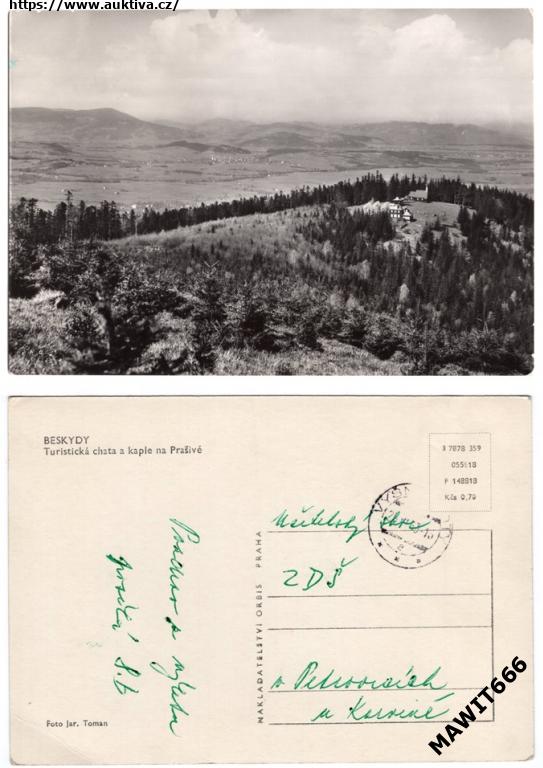 https://www.auktiva.cz/
BESKYDY
Turistická chata a kaple na Prašivé
3 7878 359
F 148818
Kčs 0,70
Učitelský sbor
ZDŠ
v Petrovicích
u Karviné
Pozdrav z výletu
8.b
NAKLADATELSTVÍ ORBIS PRAHA
Foto Jar. Toman
MAWIT666